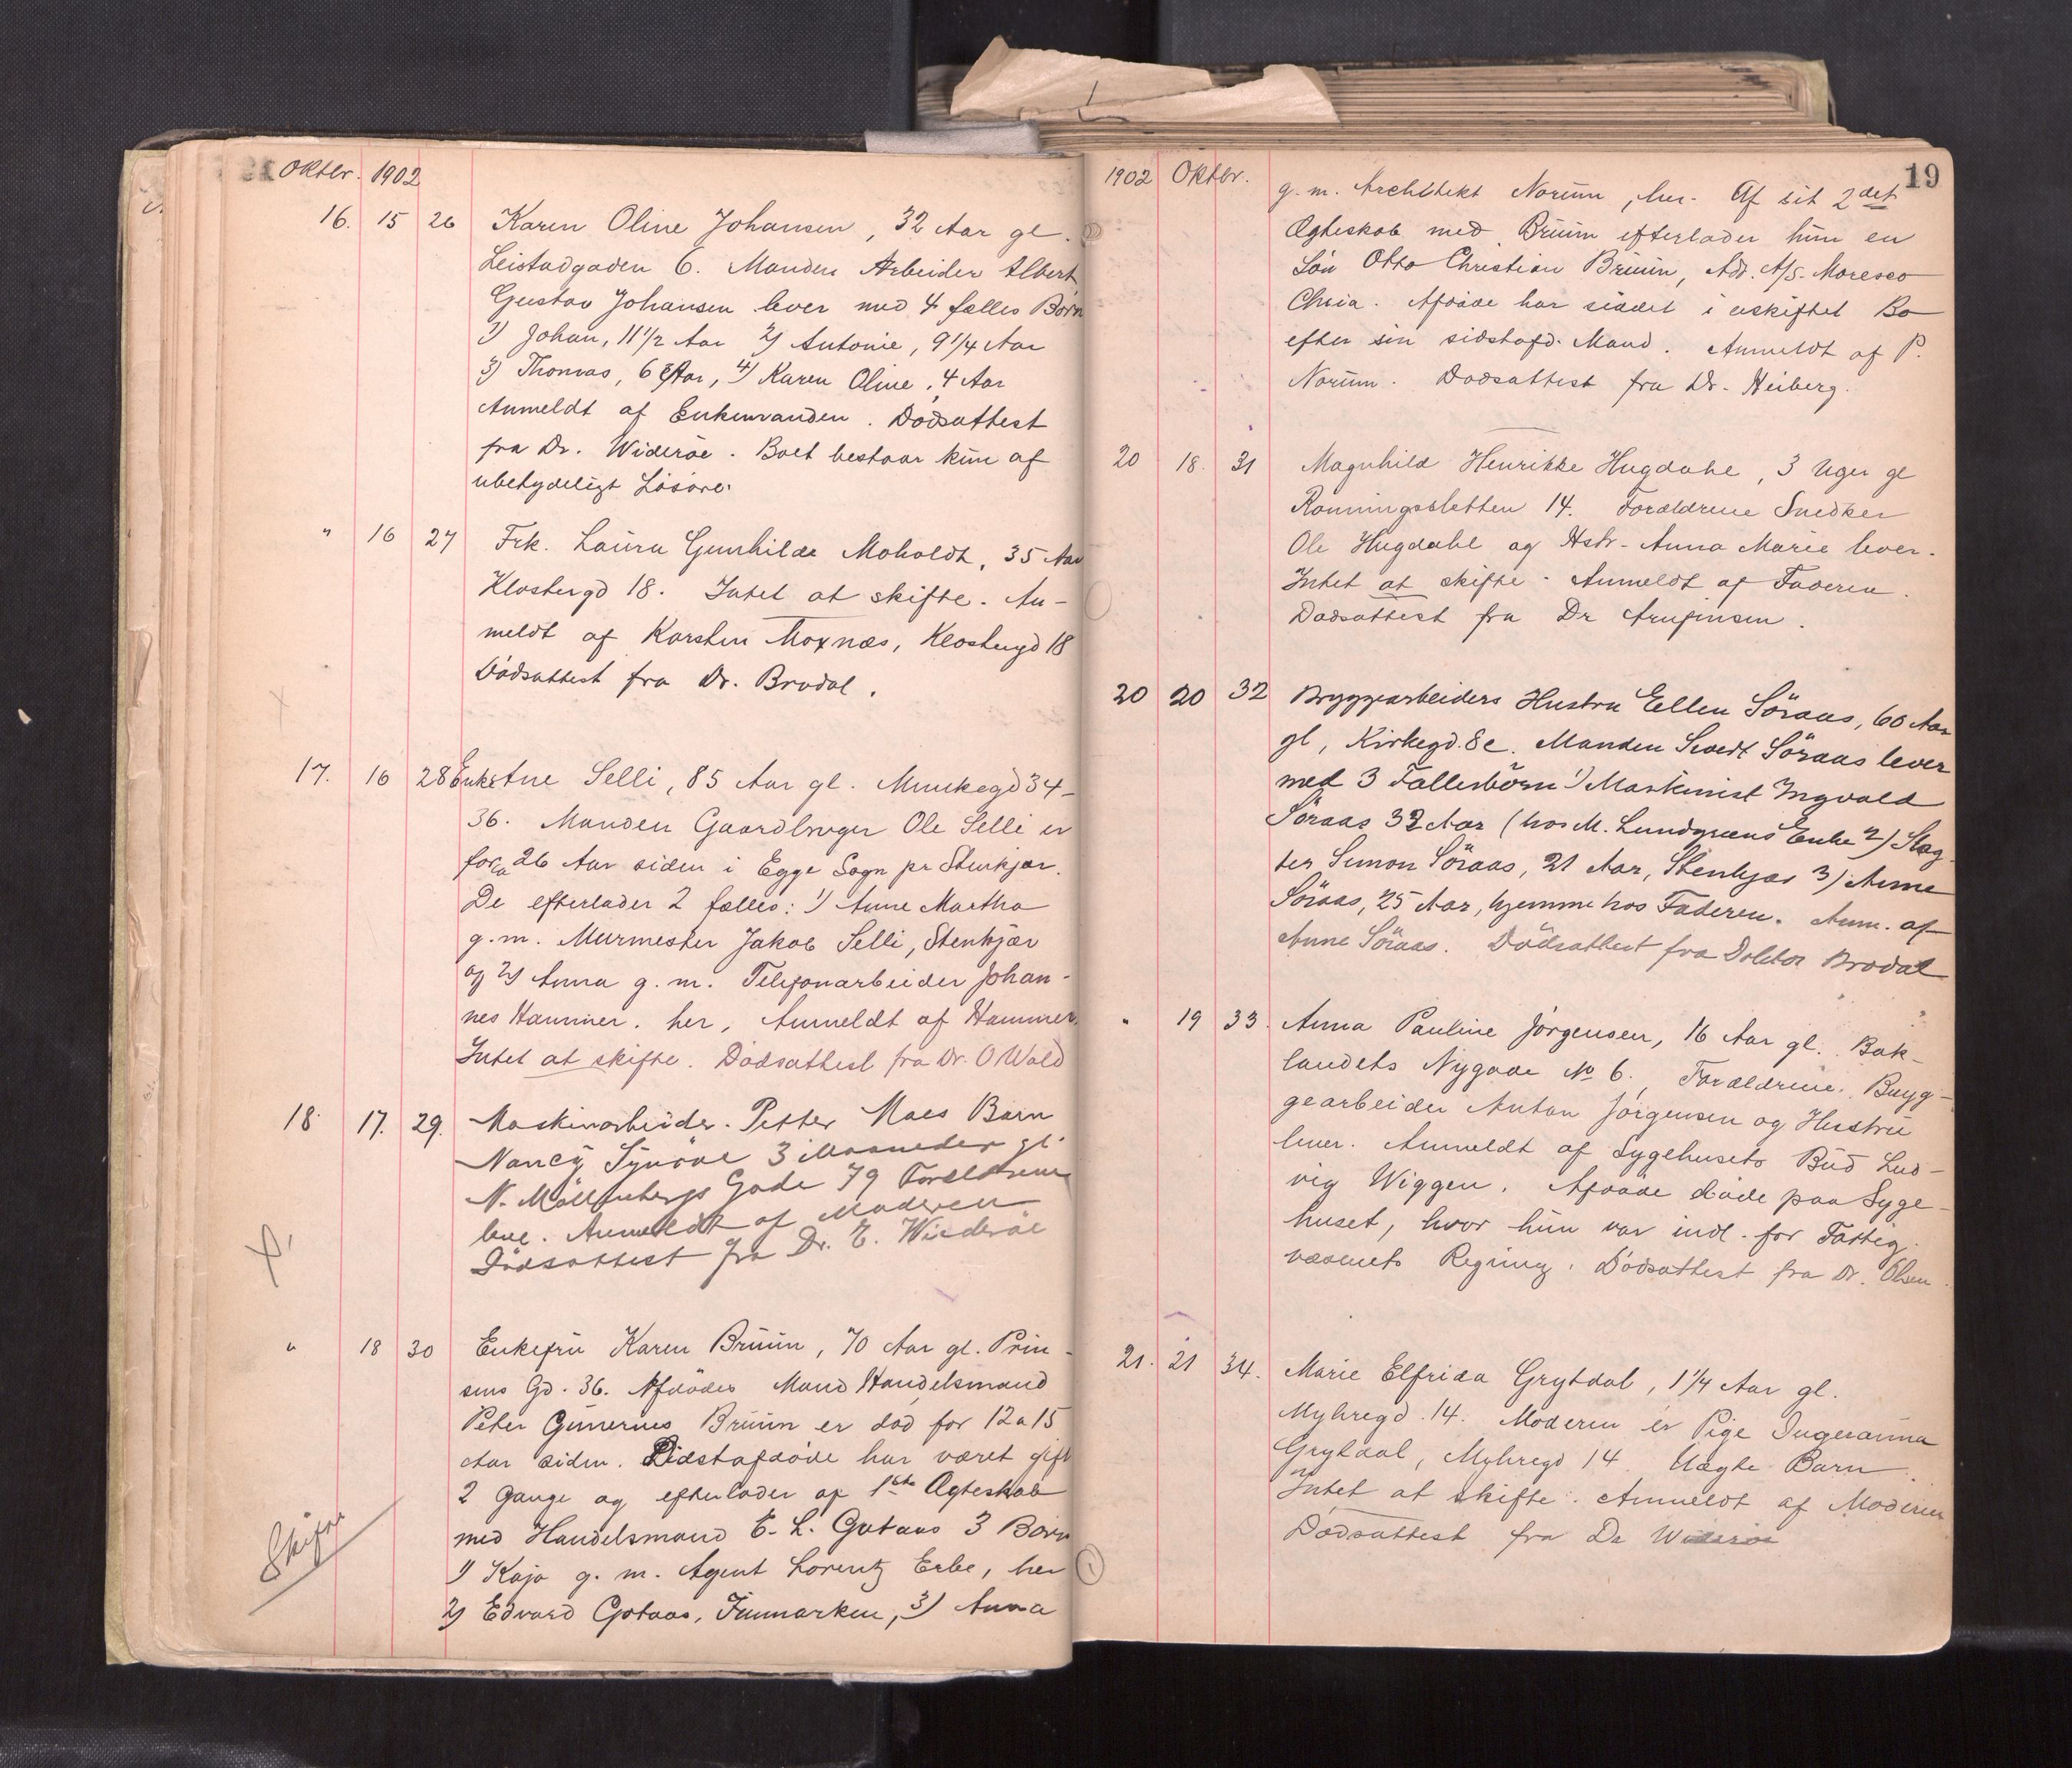 Oktbr. 1902
16. 15 26 Karen Oline Johansen, 32 Aar gl.
Leistadgaden 6. Manden Arbeider Albert
Gustav Johansen lever med 4 fælles Børn
1) Johan, 11 1/2 Aar 2) Antonie, 9 1/4 Aar
3) Thomas, 6 Aar, 4) Karen Oline, 4 Aar
Anmeldt af Enkemanden. Dødsattest
fra Dr. Widerøe. Boet bestaar kun af
ubetydeligt Løsøre.
" 16 27 Frk. Laura Gunhilde Moholdt, 35 Aar
Klostergd 18. Intet at skifte. An-
meldt af Karsten Moxnæs, Klostergd 18
Dødsattest fra Dr. Brodal.
17. 16 28 Enke Ane Selli, 85 Aar gl. Munkegd 34-
36. Manden Gaardbruger Ole Selli er
for ca 26 Aar siden i Egge Sogn pr Stenkjær.
De efterlader 2 fælles: 1) Anne Martha
g.m. Murmester Jakob Selli, Stenkjær
og 2) Anna g.m. Telefonarbeider Johan-
nes Hammer. her, Anmeldt af Hammer.
Intet at skifte. Dødsattest fra Dr. O Wold
18. 17. 29. Maskinarbeider Petter Moes Barn
Nancy Synøve 3 Maaneder gl.
N. Möllenbergs Gade 79 Forældrene
leve. Anmeldt af Moderen
Dödsattest fra Dr. E. Wiederøe
" 18 30 Enkefru Karen Bruun, 70 Aar gl. Prin-
sens Gd. 36. Afdødes Mand Handelsmand
Peter Bruun er død for 12 a 15
Aar siden. Sidstafdøde har været gift
2 Gange og efterlader af 1ste Ægteskab
med Handelsmand E. L. Gotaas 3 Børn
1) Kaja g.m. Agent Lorentz Erbe, her
2) Edvard Gotaas, Finmarken, 3) Anna
Skifte
1902 Oktbr. 19
g.m. Architekt Norum, her. Af sit 2det
Ægteskab med Bruun efterlader hun en
Søn Otto Christian Bruun, Adr. A/S. Moresco
Chria. Afdøde har siddet i uskiftet Bo
efter sin sidstafd. Mand. Anmeldt af P.
Norum. Dødsattest fra Dr. Heiberg.
20 18. 31 Magnhild Henrikke Hugdahl, 3 Uger gl
Rønningsletten 14. Forældrene Snedker
Ole Hugdahl og Hstr. Anna Marie lever.
Intet at skifte. Anmeldt af Faderen.
Dødsattest fra Dr
20 20 32 Bryggearbeiders Hustru Ellen Söraas, 60 Aar
gl, Kirkegd. 8c. Manden Sivert Söraas lever
med 3 Fællesbörn 1) Maskinist Ingvald
Söraas 32 Aar (hos M. Lundgreens Enke 2) Slag-
ter Simon Söraas, 21 Aar, Stenkjær 3) Anne
Söraas, 25 Aar, hjemme hos Faderen. Anm. af
Anne Söraas. Dödsattest fra Doktor Brodal
" 19 33. Anna Pauline Jørgensen, 16 Aar gl. Bak-
landets Nygade No 6. Forældrene Bryg-
gearbeider Anton Jørgensen og Hustru
lever. Anmeldt af Sygehusets Bud Lud-
vig Wiggen. Afdøde døde paa Syge-
huset, hvor hun var indl. for Fattig-
væsenets Regning. Dødsattest fra Dr. Olsen.
21. 21 34. Marie Elfrida Grytdal, 1 1/4 Aar gl.
Myhregd. 14. Moderen er Pige Ingeranna
Grytdal, Myhregd 14. Uægte Barn.
Intet at skifte. Anmeldt af Moderen
Dødsattest fra Dr Widerøe